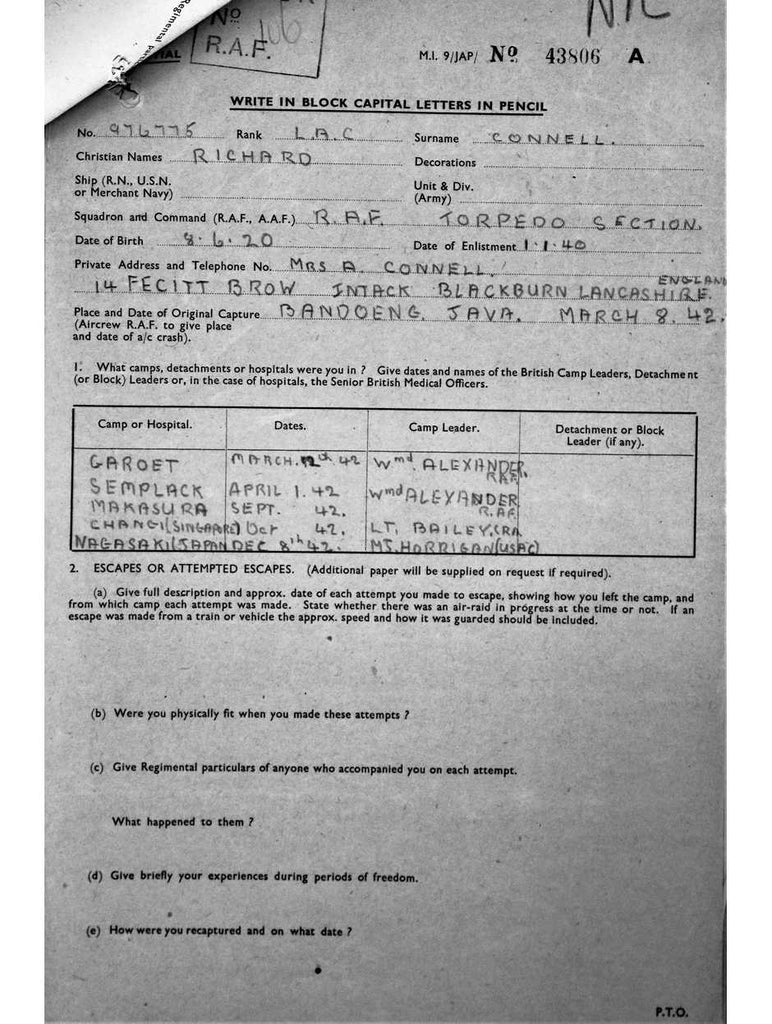 Regimental
NIL
No
R.A.F. 106
M.I. 9/JAP/ No. 43806 A
WRITE IN BLOCK CAPITAL LETTERS IN PENCIL
No. 976775 Rank L.A.C Surname CONNELL.
Christian Names RICHARD Decorations
Ship (R.N., U.S.N. or Merchant Navy)
Unit & Div. (Army)
Squadron and Command (R.A.F., A.A.F.) R.A.F. TORPEDO SECTION.
Date of Birth 8.6.20 Date of Enlistment 1.1.40
Private Address and Telephone No. MRS A. CONNELL.
14 FECITT BROW INTACK BLACKBURN LANCASHIRE. ENGLAND
Place and Date of Original Capture BANDOENG. JAVA. MARCH 8.42.
(Aircrew R.A.F. to give place
and date of a/c crash).
1. What camps, detachments or hospitals were you in ? Give dates and names of the British Camp Leaders, Detachment
(or Block) Leaders or, in the case of hospitals, the Senior British Medical Officers.
Camp or Hospital. Dates. Camp Leader. Detachment or Block
Leader (if any).
GAROET MARCH. 12th 42 Wmd. ALEXANDER. RAF.
SEMPLACK APRIL 1.42 Wmd ALEXANDER R.AF.
MAKASURA SEPT. 42.
CHANGI (SINGAPORE) Oct 42. LT. BAILEY. (RA
NAGASAKI (JAPAN DEC 8th 42. MJ. HORRIGAN (USAC)
2. ESCAPES OR ATTEMPTED ESCAPES. (Additional paper will be supplied on request if required).
(a) Give full description and approx. date of each attempt you made to escape, showing how you left the camp, and
from which camp each attempt was made. State whether there was an air-raid in progress at the time or not. If an
escape was made from a train or vehicle the approx. speed and how it was guarded should be included.
(b) Were you physically fit when you made these attempts ?
(c) Give Regimental particulars of anyone who accompanied you on each attempt.
What happened to them ?
(d) Give briefly your experiences during periods of freedom.
(e) How were you recaptured and on what date ?
P.T.O.